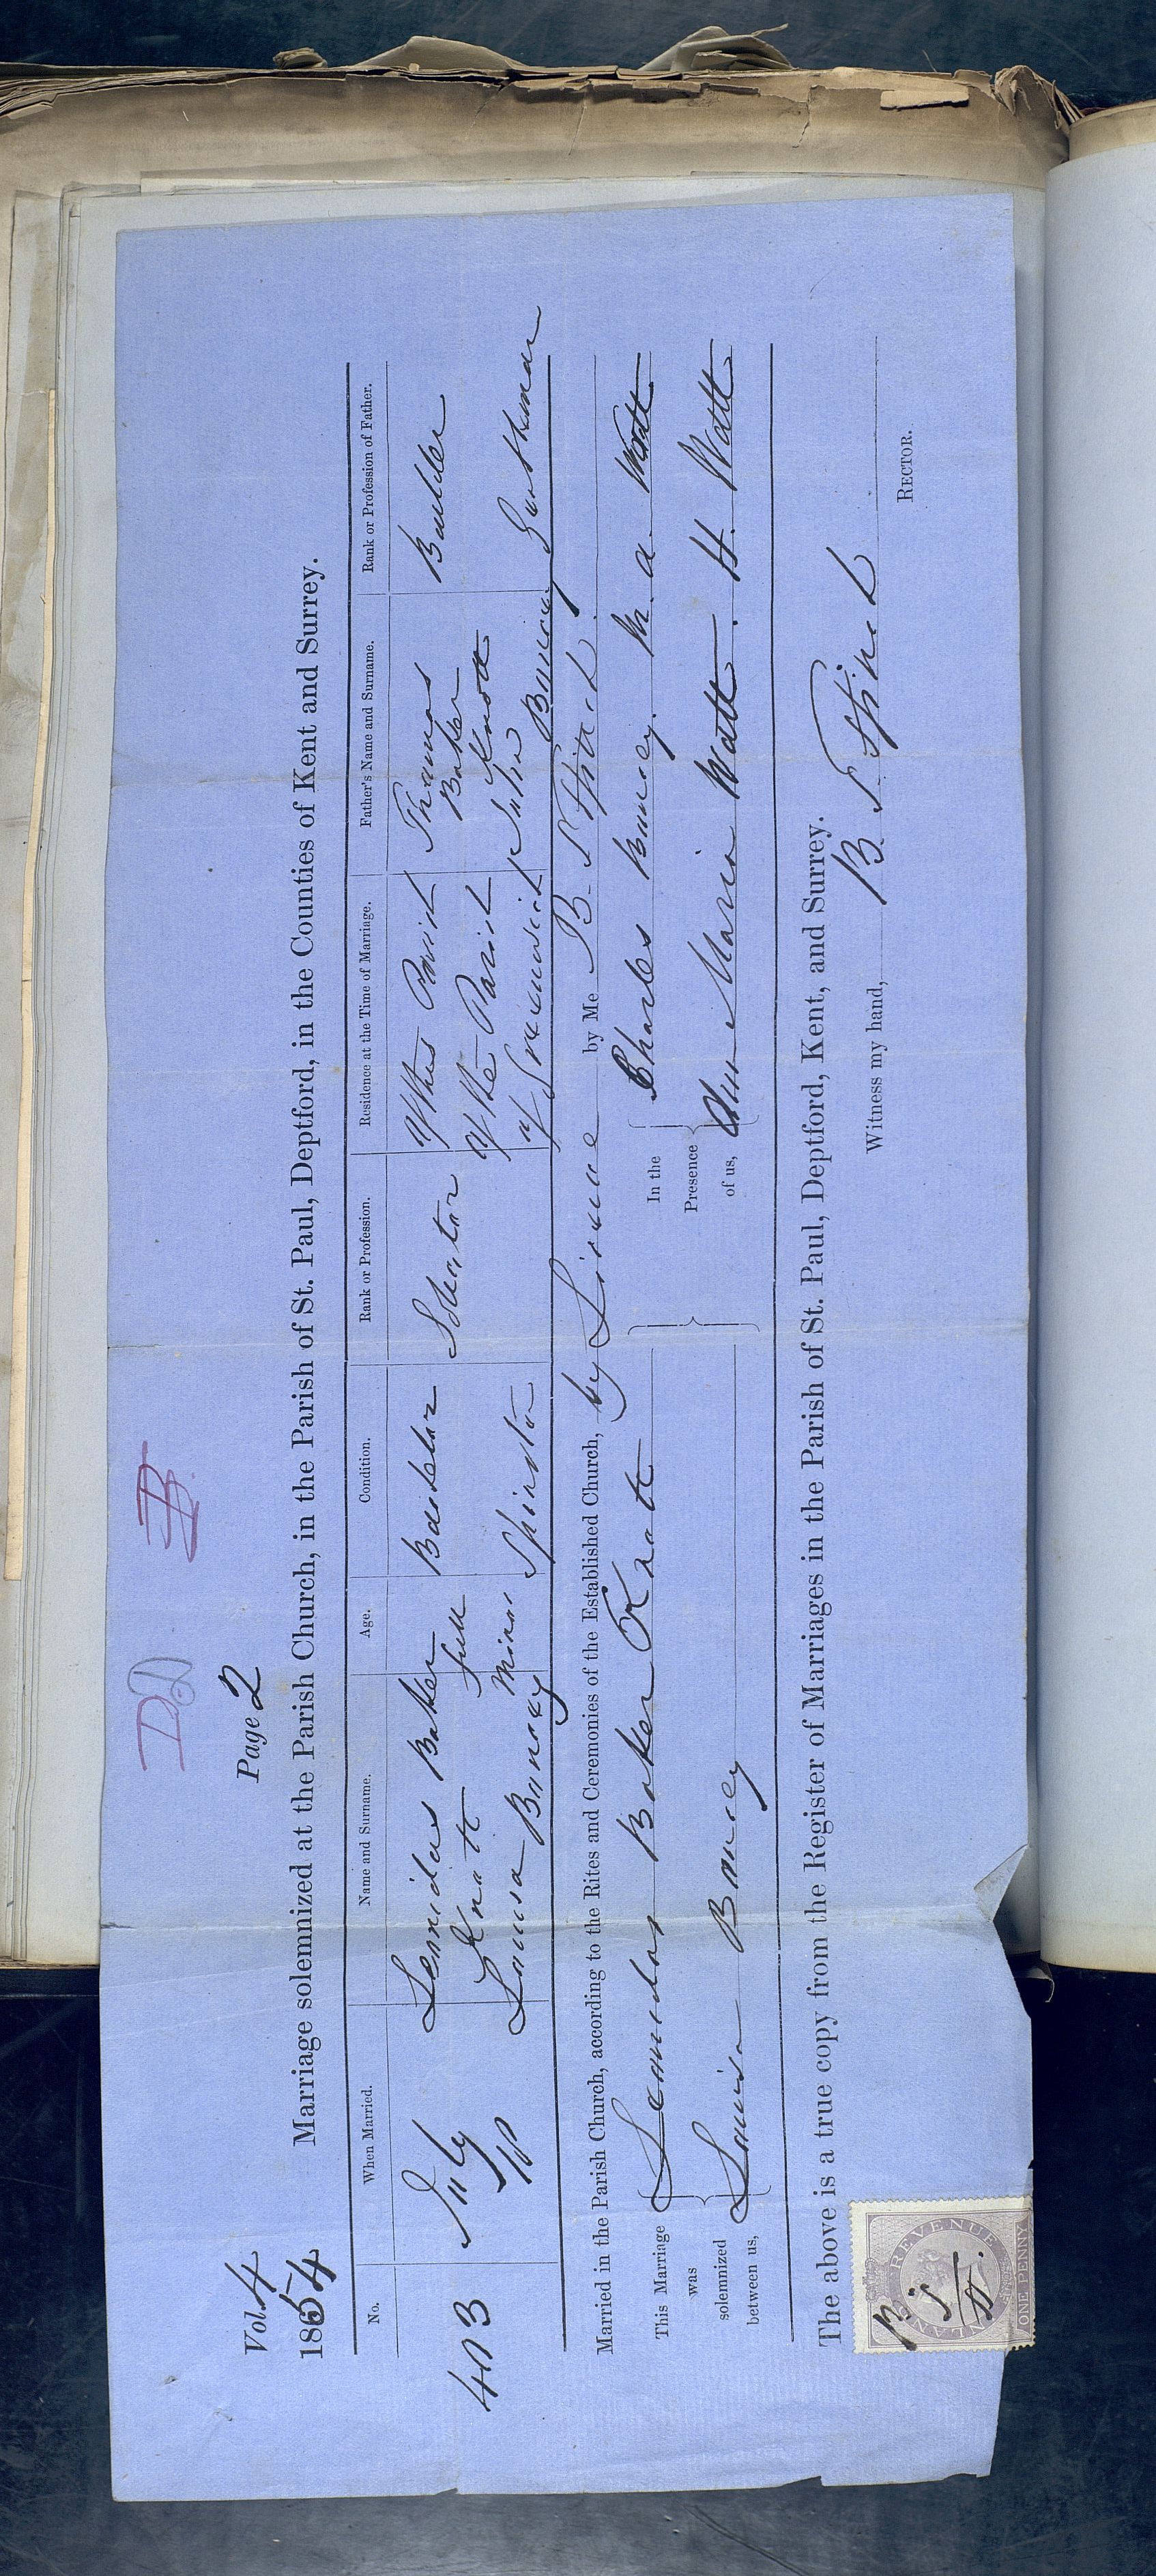 D.D B.
Vol. 4 Page 2
1854 Marriage solemnized at the Parish Church, in the Parish of St. Paul, Deptford, in the Counties of Kent and Surrey.
No. When Married. Name and Surname. Age. Condition. Rank or Profession. Residence at the Time of Marriage. Father's Name and Surname. Rank or Profession of Father.
403 July 18 Leonidas Baker Knott full Bachelor Solicitor of this Parish Thomas Baker Knott Builder
Louisa Bunney Minor Spinster of the Parish of Greenwich Bunney Gentleman
Married in the Parish Church, according to the Rites and Ceremonies of the Established Church, by Licence by Me B. S. ffinch
This Marriage was solemnized between us, Leonidas Baker Knott In the Presence of us, Charles Bunney. M. A. Watt
Louisa Bunney Ann Maria Watt. H. Watt
The above is a true copy from the Register of Marriages in the Parish of St. Paul, Deptford, Kent, and Surrey.
Witness my hand, B S ffinch
RECTOR.
INLAND REVENUE
B S ff.
ONE PENNY